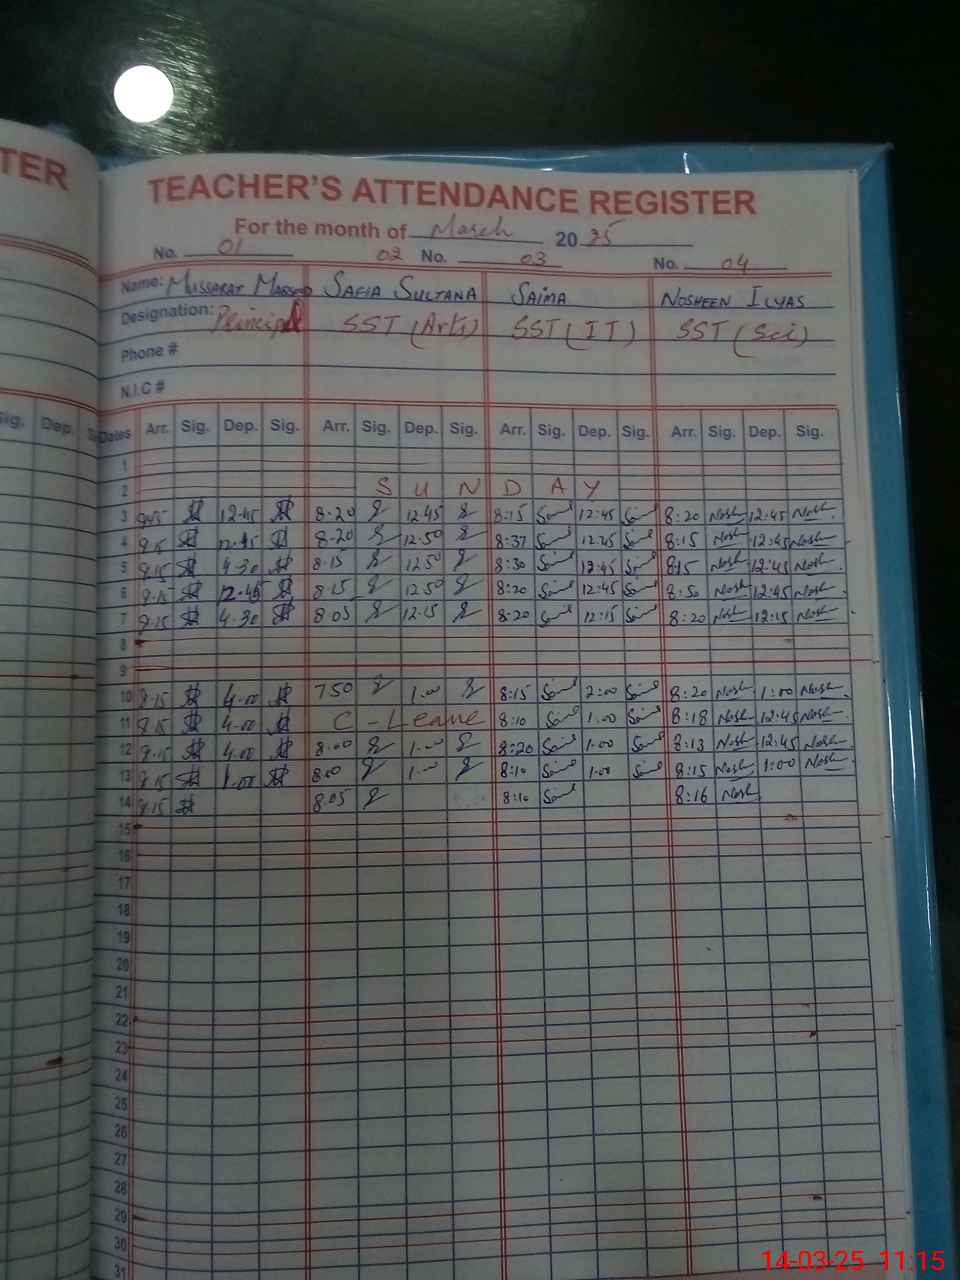 TER
TEACHER'S ATTENDANCE REGISTER
For the month of March 2025
No. 01 02 No. 03 No. 04
Name: MUSSARAT SAFIA SULTANA SAIMA NOSHEEN ILYAS
Designation: Principal SST (Arts) SST (IT) SST (Sci)
Phone #
N.I.C #
Sig. Dep. Dates Arr. Sig. Dep. Sig. Arr. Sig. Dep. Sig. Arr. Sig. Dep. Sig. Arr. Sig. Dep. Sig.
1
2 SUNDAY
3 12.45 8.20 12.45 8:15 12:45 8:20 Nosh 12:45 Nosh
4 8.15 12.45 8.20 12.50 8:37 12:45 8:15 Nosh 12:45 Nosh
5 8.15 4.30 8.15 12.50 8:30 12:45 8:15 Nosh 12:45 Nosh
6 8.15 12.45 8.15 12.50 8:20 12:45 8:50 Nosh 12:45 Nosh
7 8.15 4.30 8.05 12.15 8:20 12:15 8:20 Nosh 12:15 Nosh
8
9
10 8.15 4.00 7.50 1.00 8:15 2:00 8:20 Nosh 1:00 Nosh
11 8.15 4.00 C-Leave 8:10 1:00 8:18 Nosh 12:45 Nosh
12 8.15 4.00 8.00 1.00 8:20 1:00 8:13 Nosh 12:45 Nosh
13 8.15 1.00 8.00 1.00 8:10 1:00 8:15 Nosh 1:00 Nosh
14 8.15 8.05 8:10 8:16 Nosh
15
16
17
18
19
20
21
22
23
24
25
26
27
28
29
30
31
14-03-25 11:15